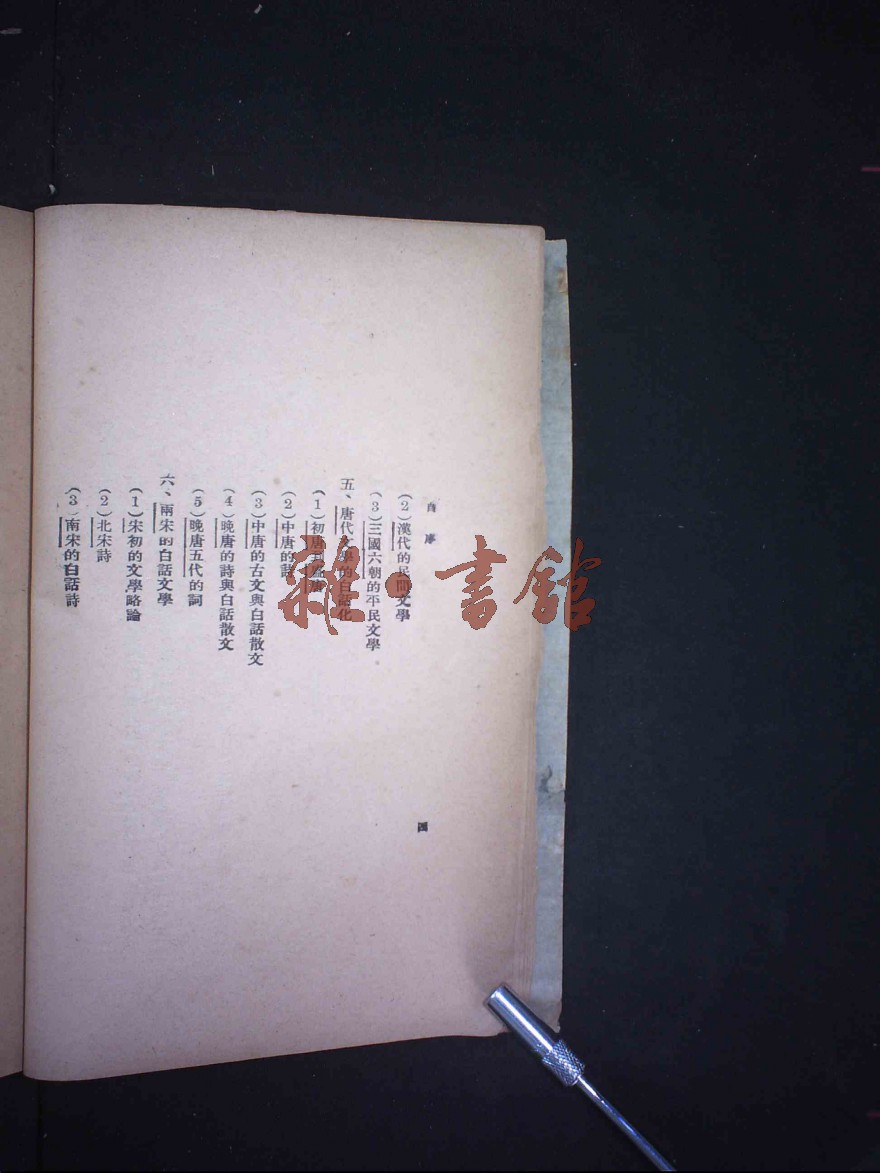 自序
(2)漢代的民間文學
(3)三國六朝的平民文學
五、唐代文學的白話化
(1)初唐到盛唐
(2)中唐的詩
(3)中唐的古文與白話散文
(4)晚唐的詩與白話散文
(5)晚唐五代的詞
六、兩宋的白話文學
(1)宋初的文學略論
(2)北宋詩
(3)南宋的白話詩
四
雜·書館